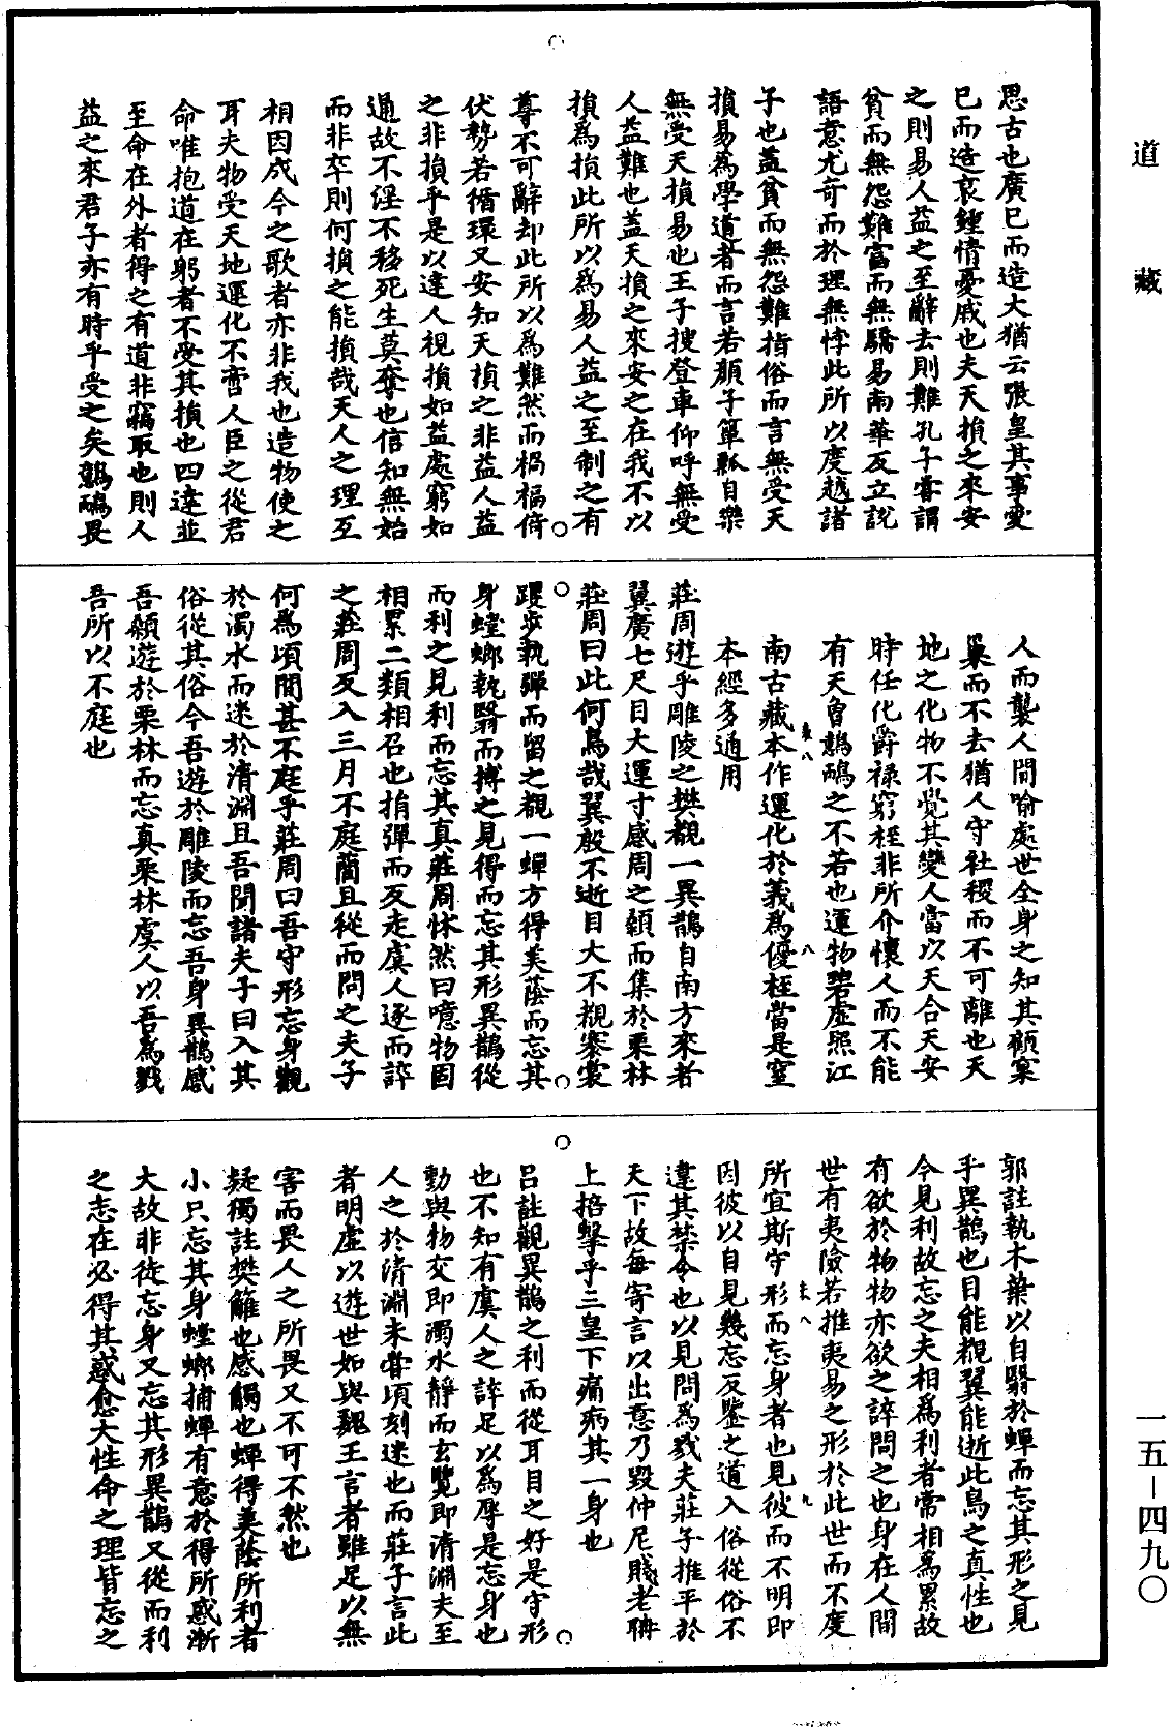 道藏
一五—四九〇
思古也廣已而造大猶云張皇其事愛
已而造哀鍾情憂戚也夫天損之來安
之則易人益之至辭去則難孔子嘗謂
貧而無怨難富而無驕易南華反立說
語意尤奇而於理無悖此所以度越諸
子也蓋貧而無怨難指俗而言無受天
損易為學道者而言若顏子簞瓢自樂
無受天損易也王子搜登車仰呼無受
人益難也蓋天損之來安之在我不以
損為損此所以為易人益之至制之有
尊不可辭却此所以為難然而禍福倚
伏勢若循環又安知天損之非益人益
之非損乎是以達人視損如益處窮如
通故不淫不移死生莫奪也信知無始
而非卒則何損之能損哉天人之理互
相因成今之歌者亦非我也造物使之
耳夫物受天地運化不啻人臣之從君
命唯抱道在躬者不受其損也四達並
至命在外者得之有道非竊取也則人
益之來君子亦有時乎受之矣鷾鴯畏
人而襲人間喻處世全身之知其顧窠
巢而不去猶人守社稷而不可離也天
地之化物不覺其變人當以天合天安
時任化爵祿窮桎非所介懷人而不能
有天曾鷾鴯之不若也運物碧虛照江
南古藏本作運化於義為優桎當是窒
本經多通用
莊周遊乎雕陵之樊覩一異鵲自南方來者
翼廣七尺目大運寸感周之顙而集於栗林
莊周曰此何鳥哉翼殷不逝目大不覩蹇裳
躩步執彈而留之覩一蟬方得美蔭而忘其
身螳螂執翳而搏之見得而忘其形異鵲從
而利之見利而忘其真莊周怵然曰噫物固
相累二類相召也捐彈而反走虞人逐而誶
之莊周反入三月不庭藺且從而問之夫子
何為頃間甚不庭乎莊周曰吾守形忘身觀
於濁水而迷於清淵且吾聞諸夫子曰入其
俗從其俗今吾遊於雕陵而忘吾身異鵲感
吾顙遊於栗林而忘真栗林虞人以吾為戮
吾所以不庭也
郭註執木葉以自翳於蟬而忘其形之見
乎異鵲也目能覩翼能逝此鳥之真性也
今見利故忘之夫相為利者常相為累故
有欲於物物亦欲之誶問之也身在人間
世有夷險若推夷易之形於此世而不度
所宜斯守形而忘身者也見彼而不明即
因彼以自見幾忘反鑒之道入俗從俗不
違其禁令也以見問為戮夫莊子推平於
天下故每寄言以出意乃毀仲尼賤老聃
上掊擊乎三皇下痛病其一身也
呂註觀異鵲之利而從耳目之好是守形
也不知有虞人之誶足以為辱是忘身也
動與物交即濁水靜而玄覽即清淵夫至
人之於清淵未嘗頃刻迷也而莊子言此
者明虛以遊世如與魏王言者雖足以無
害而畏人之所畏又不可不然也
疑獨註樊籬也感觸也蟬得美蔭所利者
小只忘其身螳螂捕蟬有意於得所惑漸
大故非徒忘身又忘其形異鵲又從而利
之志在必得其惑愈大性命之理皆忘之